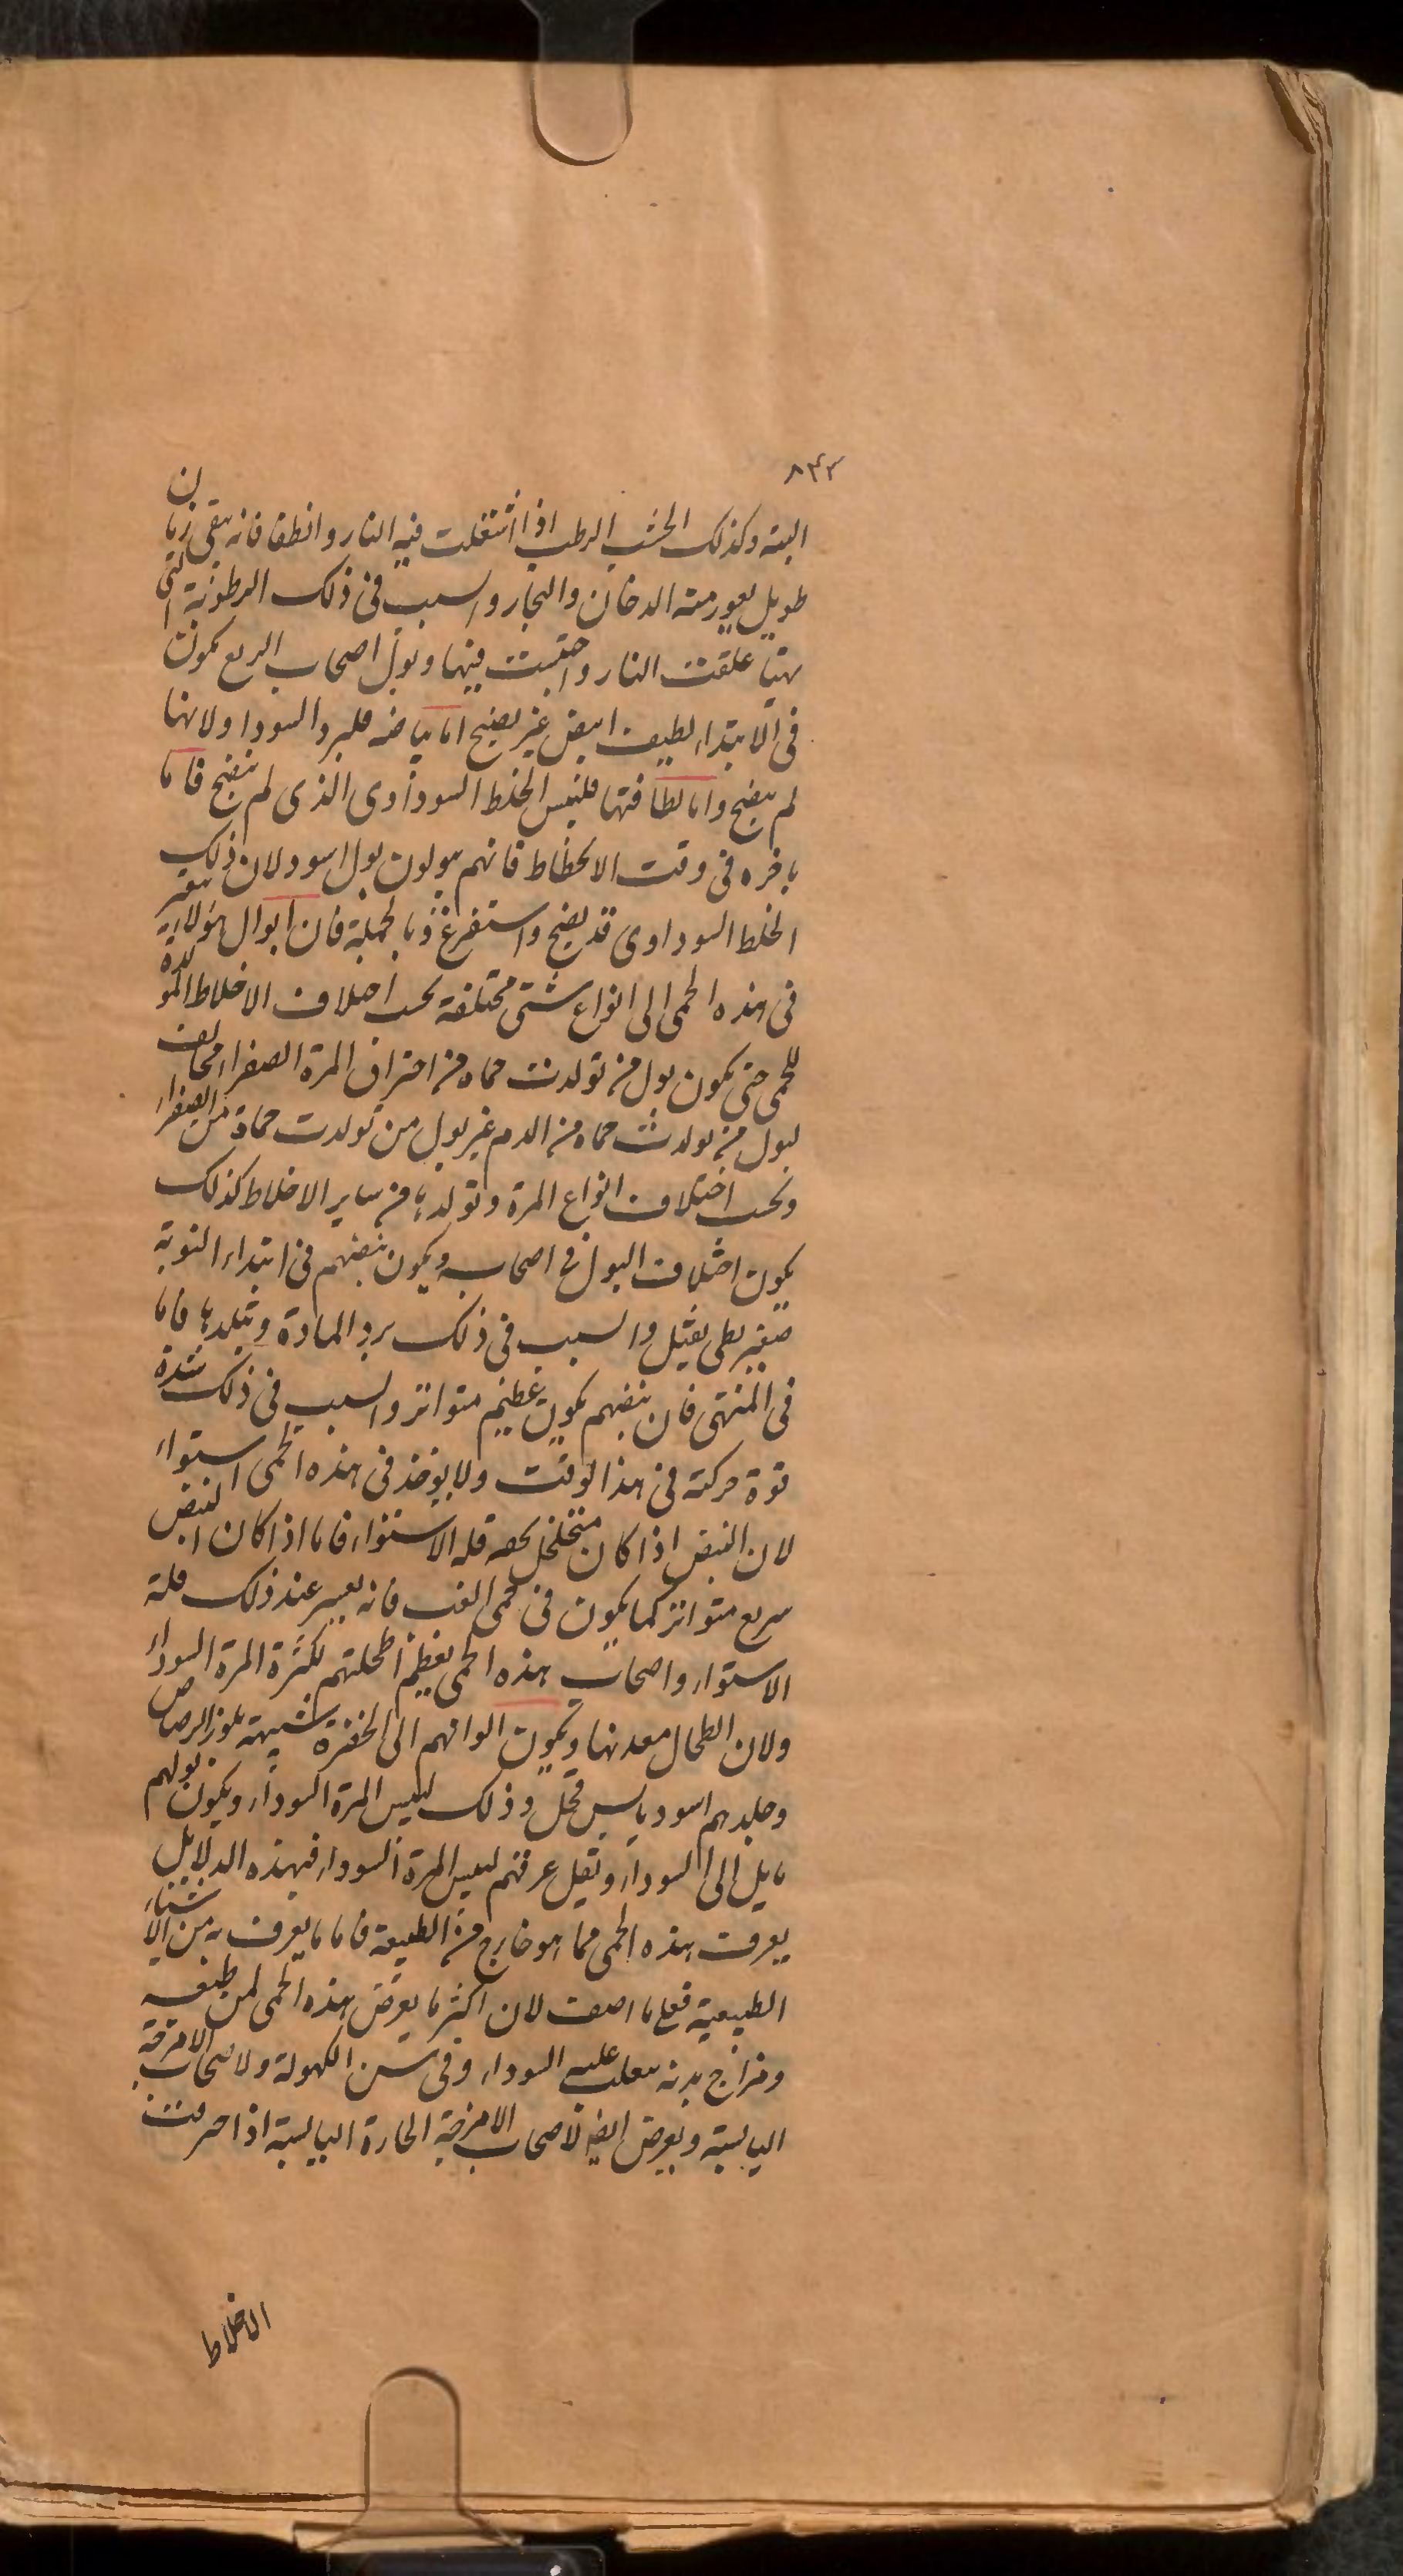 ٨٤٣
البتة وكذلك الخشب الرطب اذا اشتعلت فيه النار وانطفا فانه يبقى زمان
طويل يفور منه الدخان والبخار والسبب فى ذلك الرطوبة التى
بها علقت النار واحتبست فيها وبول اصحاب الربع يكون
فى الابتداء لطيف ابيض غير نضيج اما بياضه فلبرد السودا ولانها
لم ينضج واما لطافتها فليبس الخلط السوداوى الذى لم ينضج فاما
باخره فى وقت الانحطاط فانهم يبولون بول اسود لان ذلك
الخلط السوداوى قد نضج واستفرغ وبالجملة فان ابوال هؤلاء يتغير
فى هذه الحمى الى انواع شتى مختلفة بحسب اختلاف الاخلاط المولدة
للحمى حتى يكون بول من تولدت حماه من احتراق المرة الصفراء مخالف
لبول من تولدت حماه من الدم غير بول من تولدت حماة من الصفراء
وبحسب اختلاف انواع المرة وتولدها من ساير الاخلاط كذلك
يكون اختلاف البول فى اصحابه ويكون نبضهم فى ابتداء النوبة
صغير بطى ثقيل والسبب فى ذلك برد المادة وتبلدها فاما
فى المنتهى فان نبضهم يكون عظيم متواتر والسبب فى ذلك شدة
قوة حركته فى هذا الوقت ولا يوخذ فى هذه الحمى استواء
لان النبض اذا كان متخلخل يخصه قلة الاستواء فاما اذا كان النبض
سريع متواتر كما يكون فى حمى الغب فانه يعسر عند ذلك قلة
الاستواء واصحاب هذه الحمى يعظم اطحلتهم لكثرة المرة السوداء
ولان الطحال معدنها وتكون الوانهم الى الخضرة شبيهة بلون الرصاص
وجلدهم اسود يابس قحل وذلك ليبس المرة السوداء ويكون بولهم
مايل الى السوداء ويقل عرقهم ليبس المرة السوداء فبهذه الدلايل
يعرف هذه الحمى مما هو خارج من الطبيعة فاما ما يعرف به من الاشياء
الطبيعية فعلى ما اصف لان اكثر ما يعرض هذه الحمى لمن طبعه
ومزاج بدنه يغلب عليه السوداء وفى سن الكهولة ولاصحاب الامزجة
اليابسة ويعرض ايضا لاصحاب الامزجة الحارة اليابسة اذا احترقت
الاخلاط